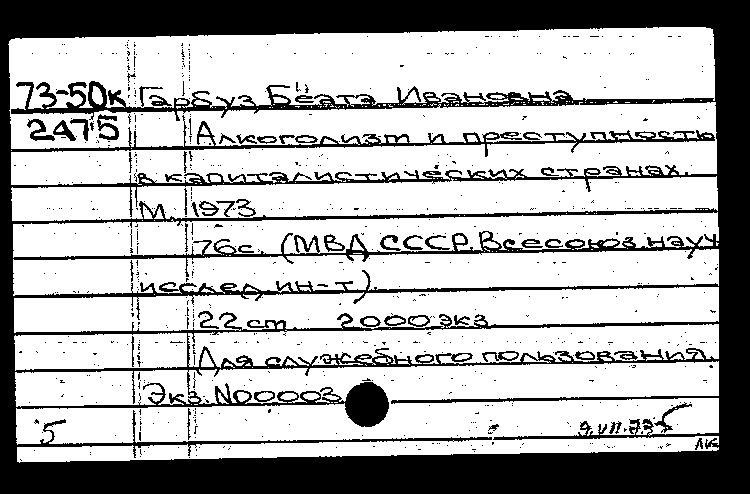 73-50к Гарбуз, Беата Ивановна
2475 Алкоголизм и преступность
в капиталистических странах.
М., 1973.
76с. (МВД СССР. Всесоюз. науч.
исслед. ин-т).
22 см. 2000 экз.
Для служебного пользования.
Экз. N00003
5 9.VII.73